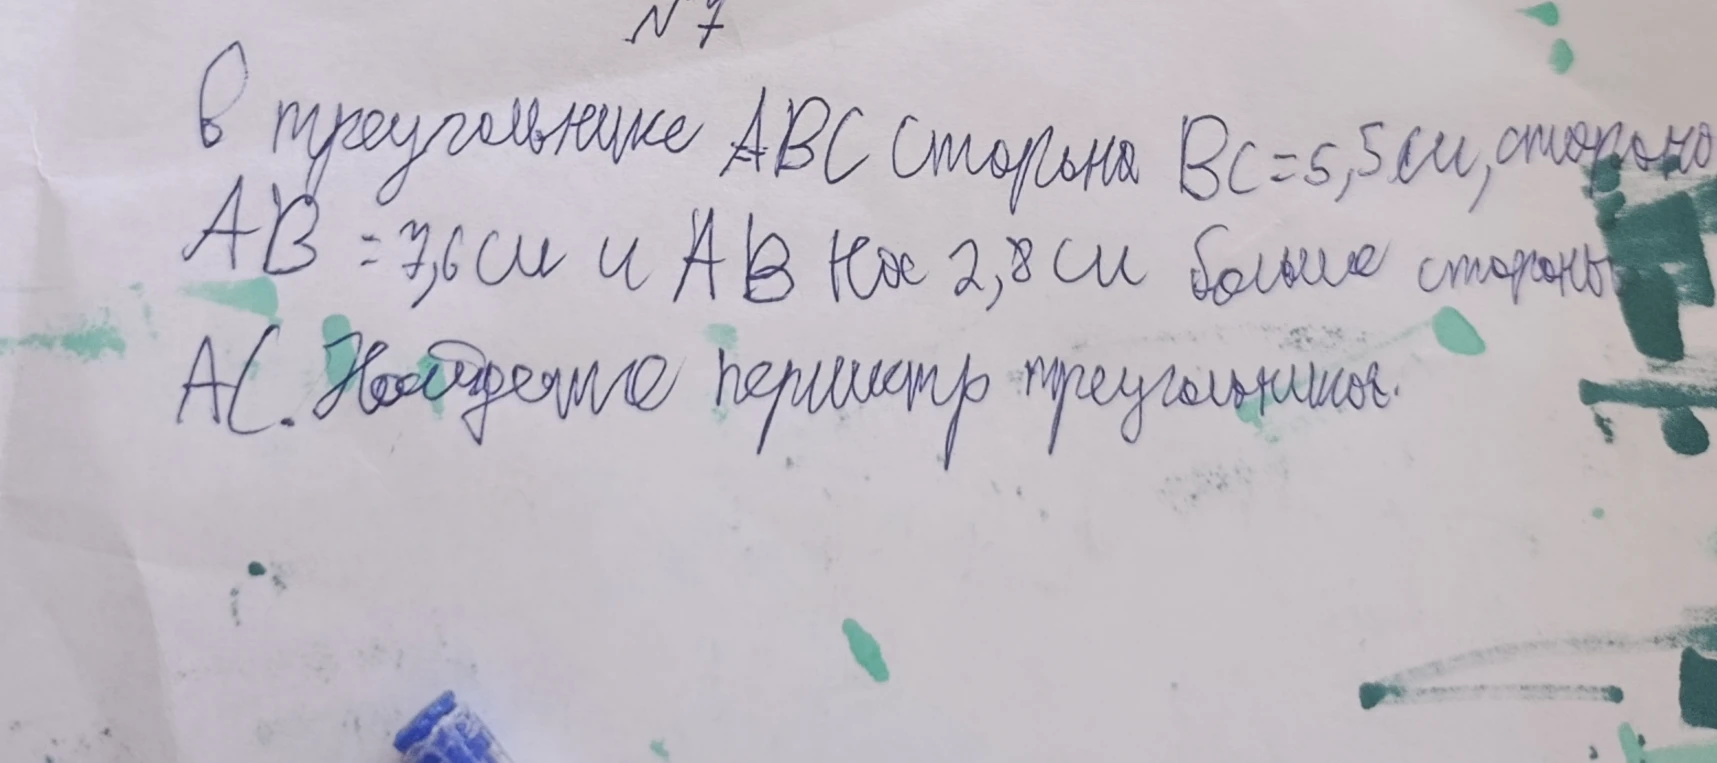 N 7
В треугольнике ABC сторона BC=5,5см, сторона
AB = 7,6 см и AB на 2,8 см больше стороны
AC. Найдите периметр треугольника.